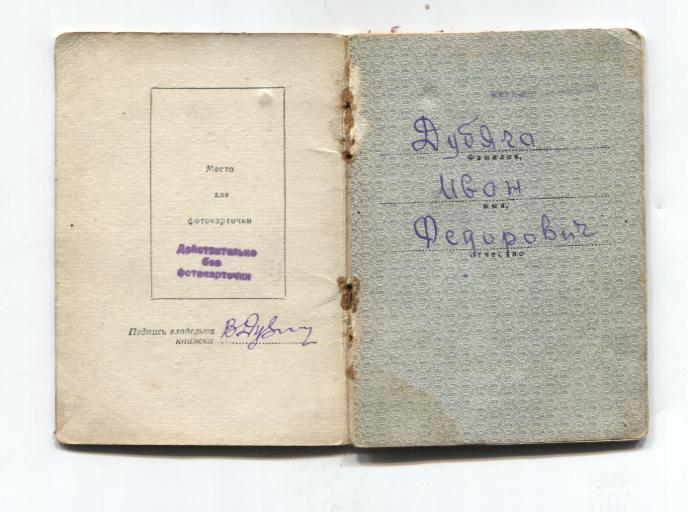 Место
для
фотокарточки
Действительно
без
фотокарточки
Подпись владельца
книжки
Дубяга
фамилия,
Иван
имя,
Федорович
отчество